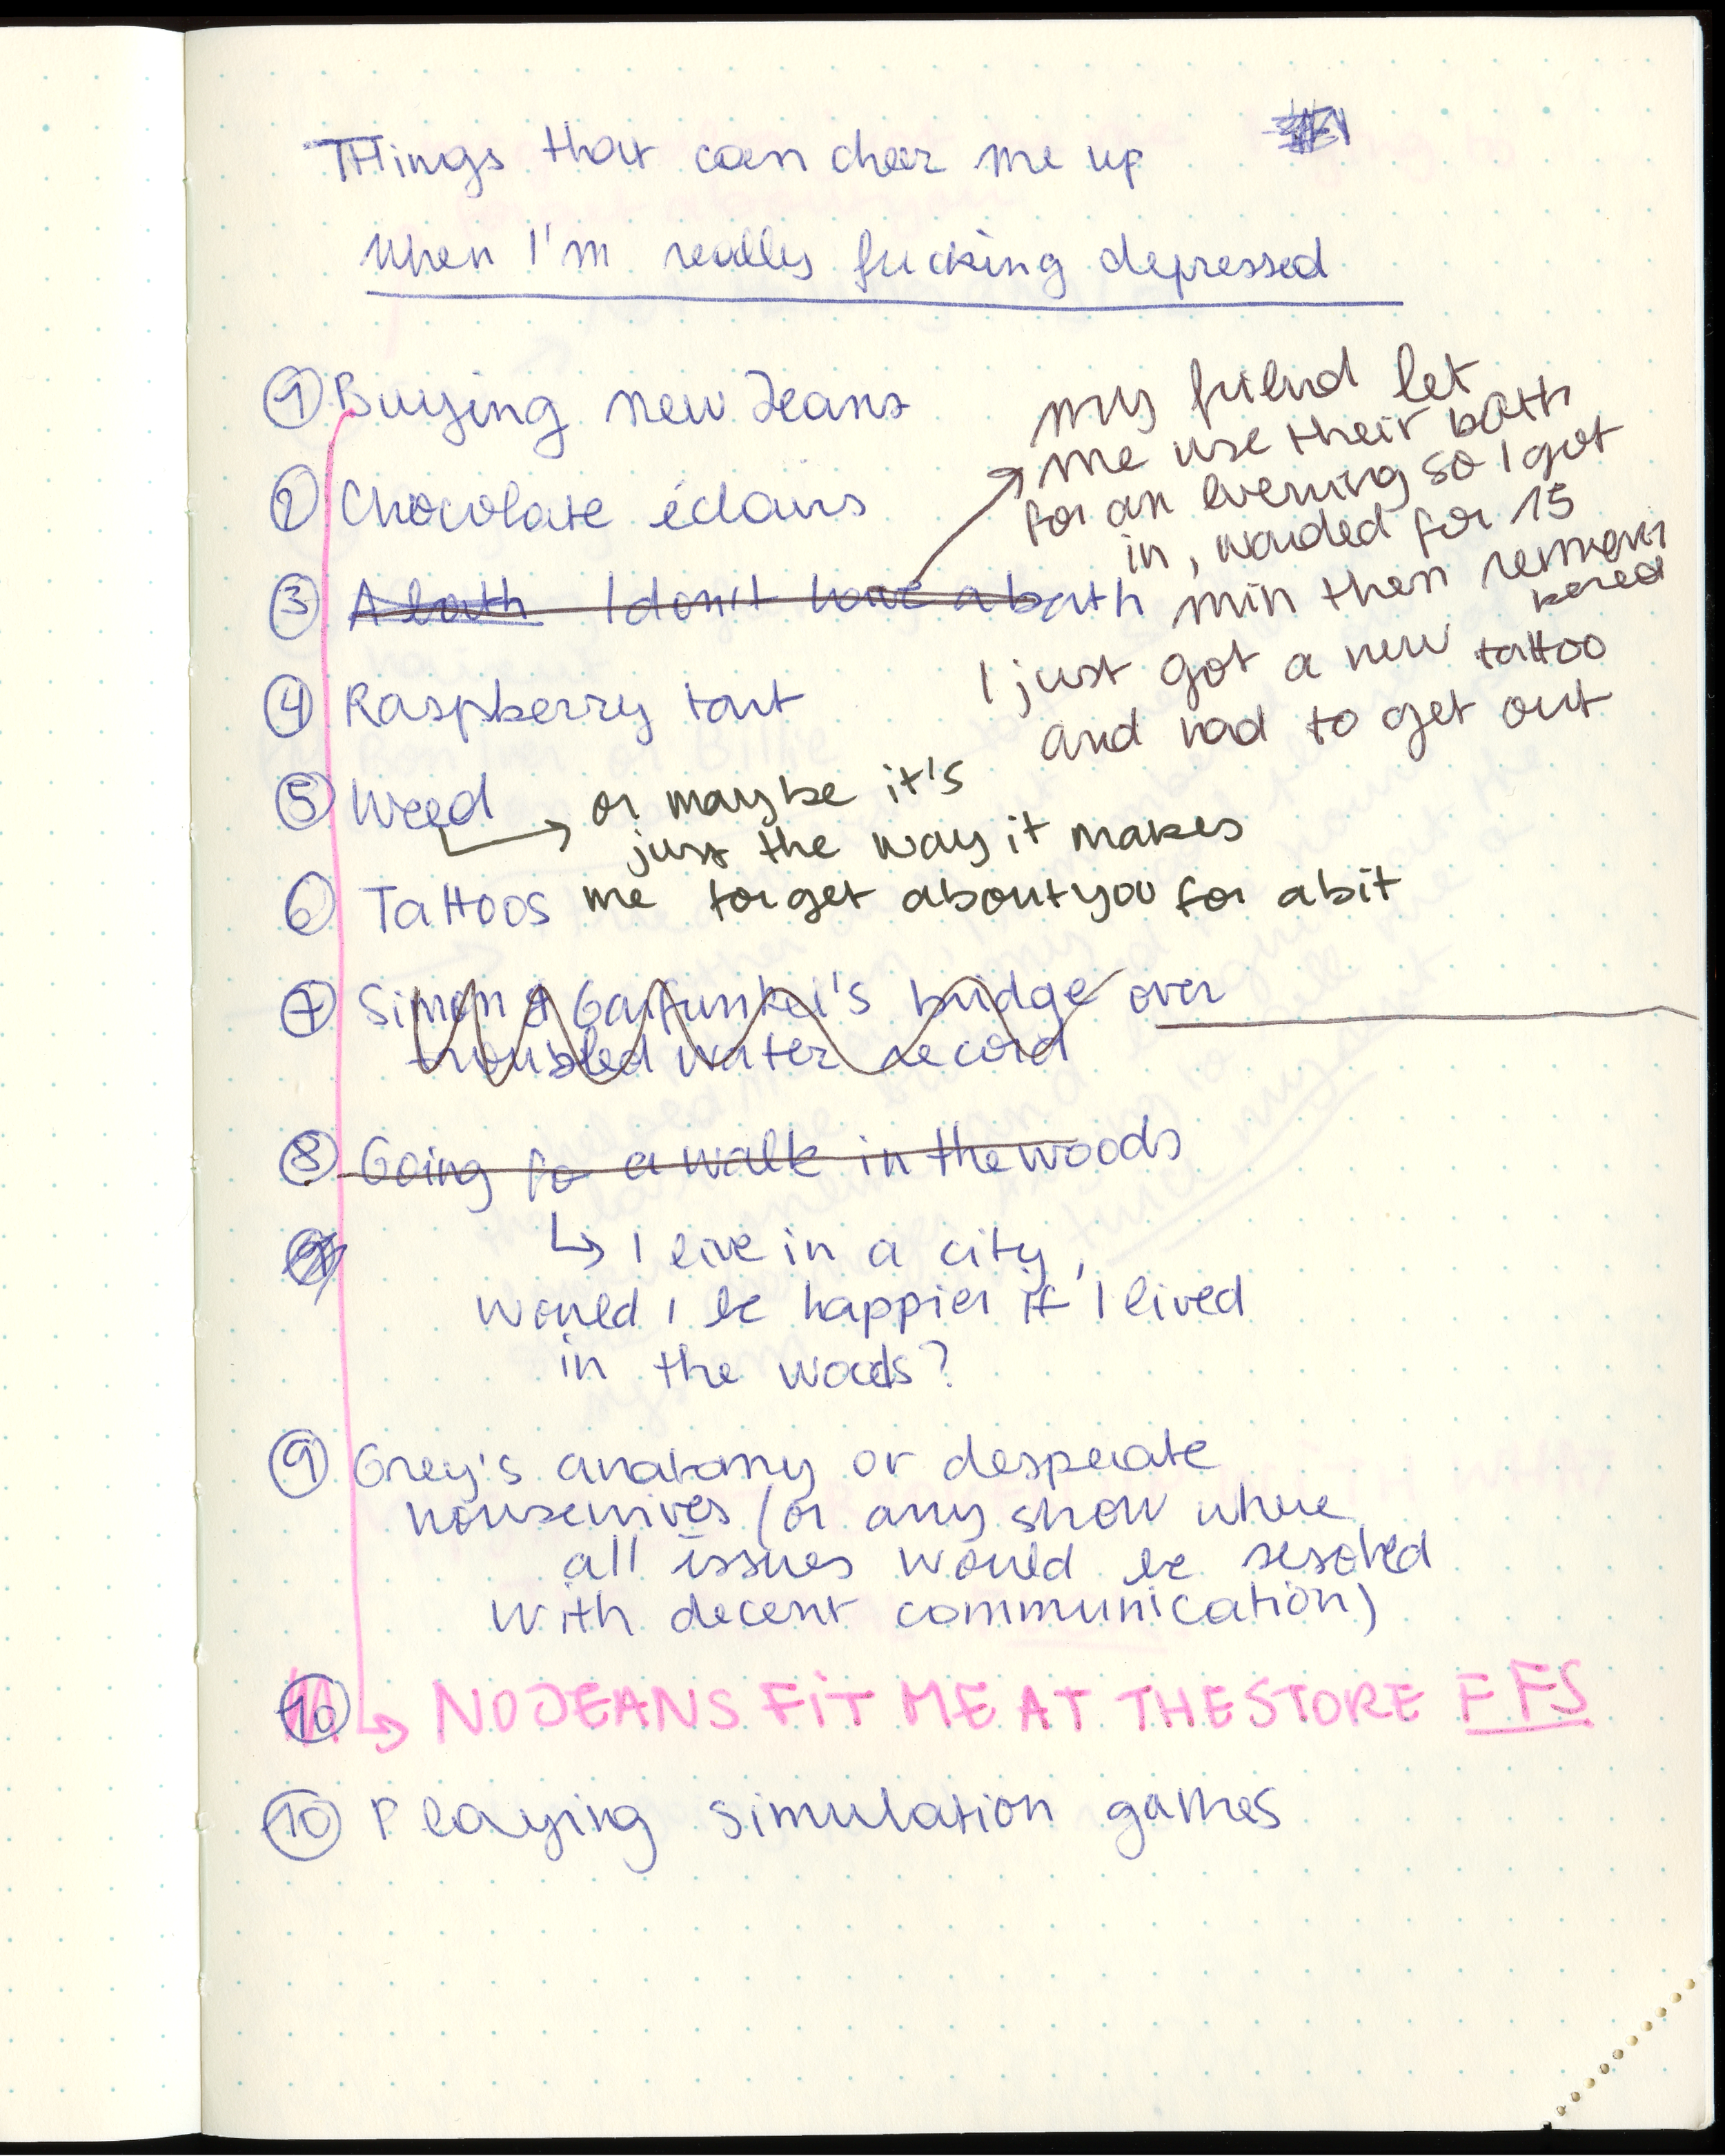 THings that can cheer me up #1
when I'm really fucking depressed
① Buying new Jeans
② Chocolate éclairs
③ A bath I don't have a bath
my friend let
me use their bath
for an evening so I got
in, waited for 15
min then remem
bered
I just got a new tattoo
and had to get out
④ Raspberry tart
⑤ Weed
or maybe it's
just the way it makes
me forget about you for a bit
⑥ Tattoos
⑦ Simon & Garfunkel's bridge over
troubled water record
⑧ Going fo a walk in the woods
I live in a city,
would I be happier if I lived
in the woods?
⑨ Grey's anatomy or desperate
housewives (or any show where
all issues would be resolved
with decent communication)
⑩ NO JEANS FIT ME AT THE STORE FFS
⑩ Playing simulation games